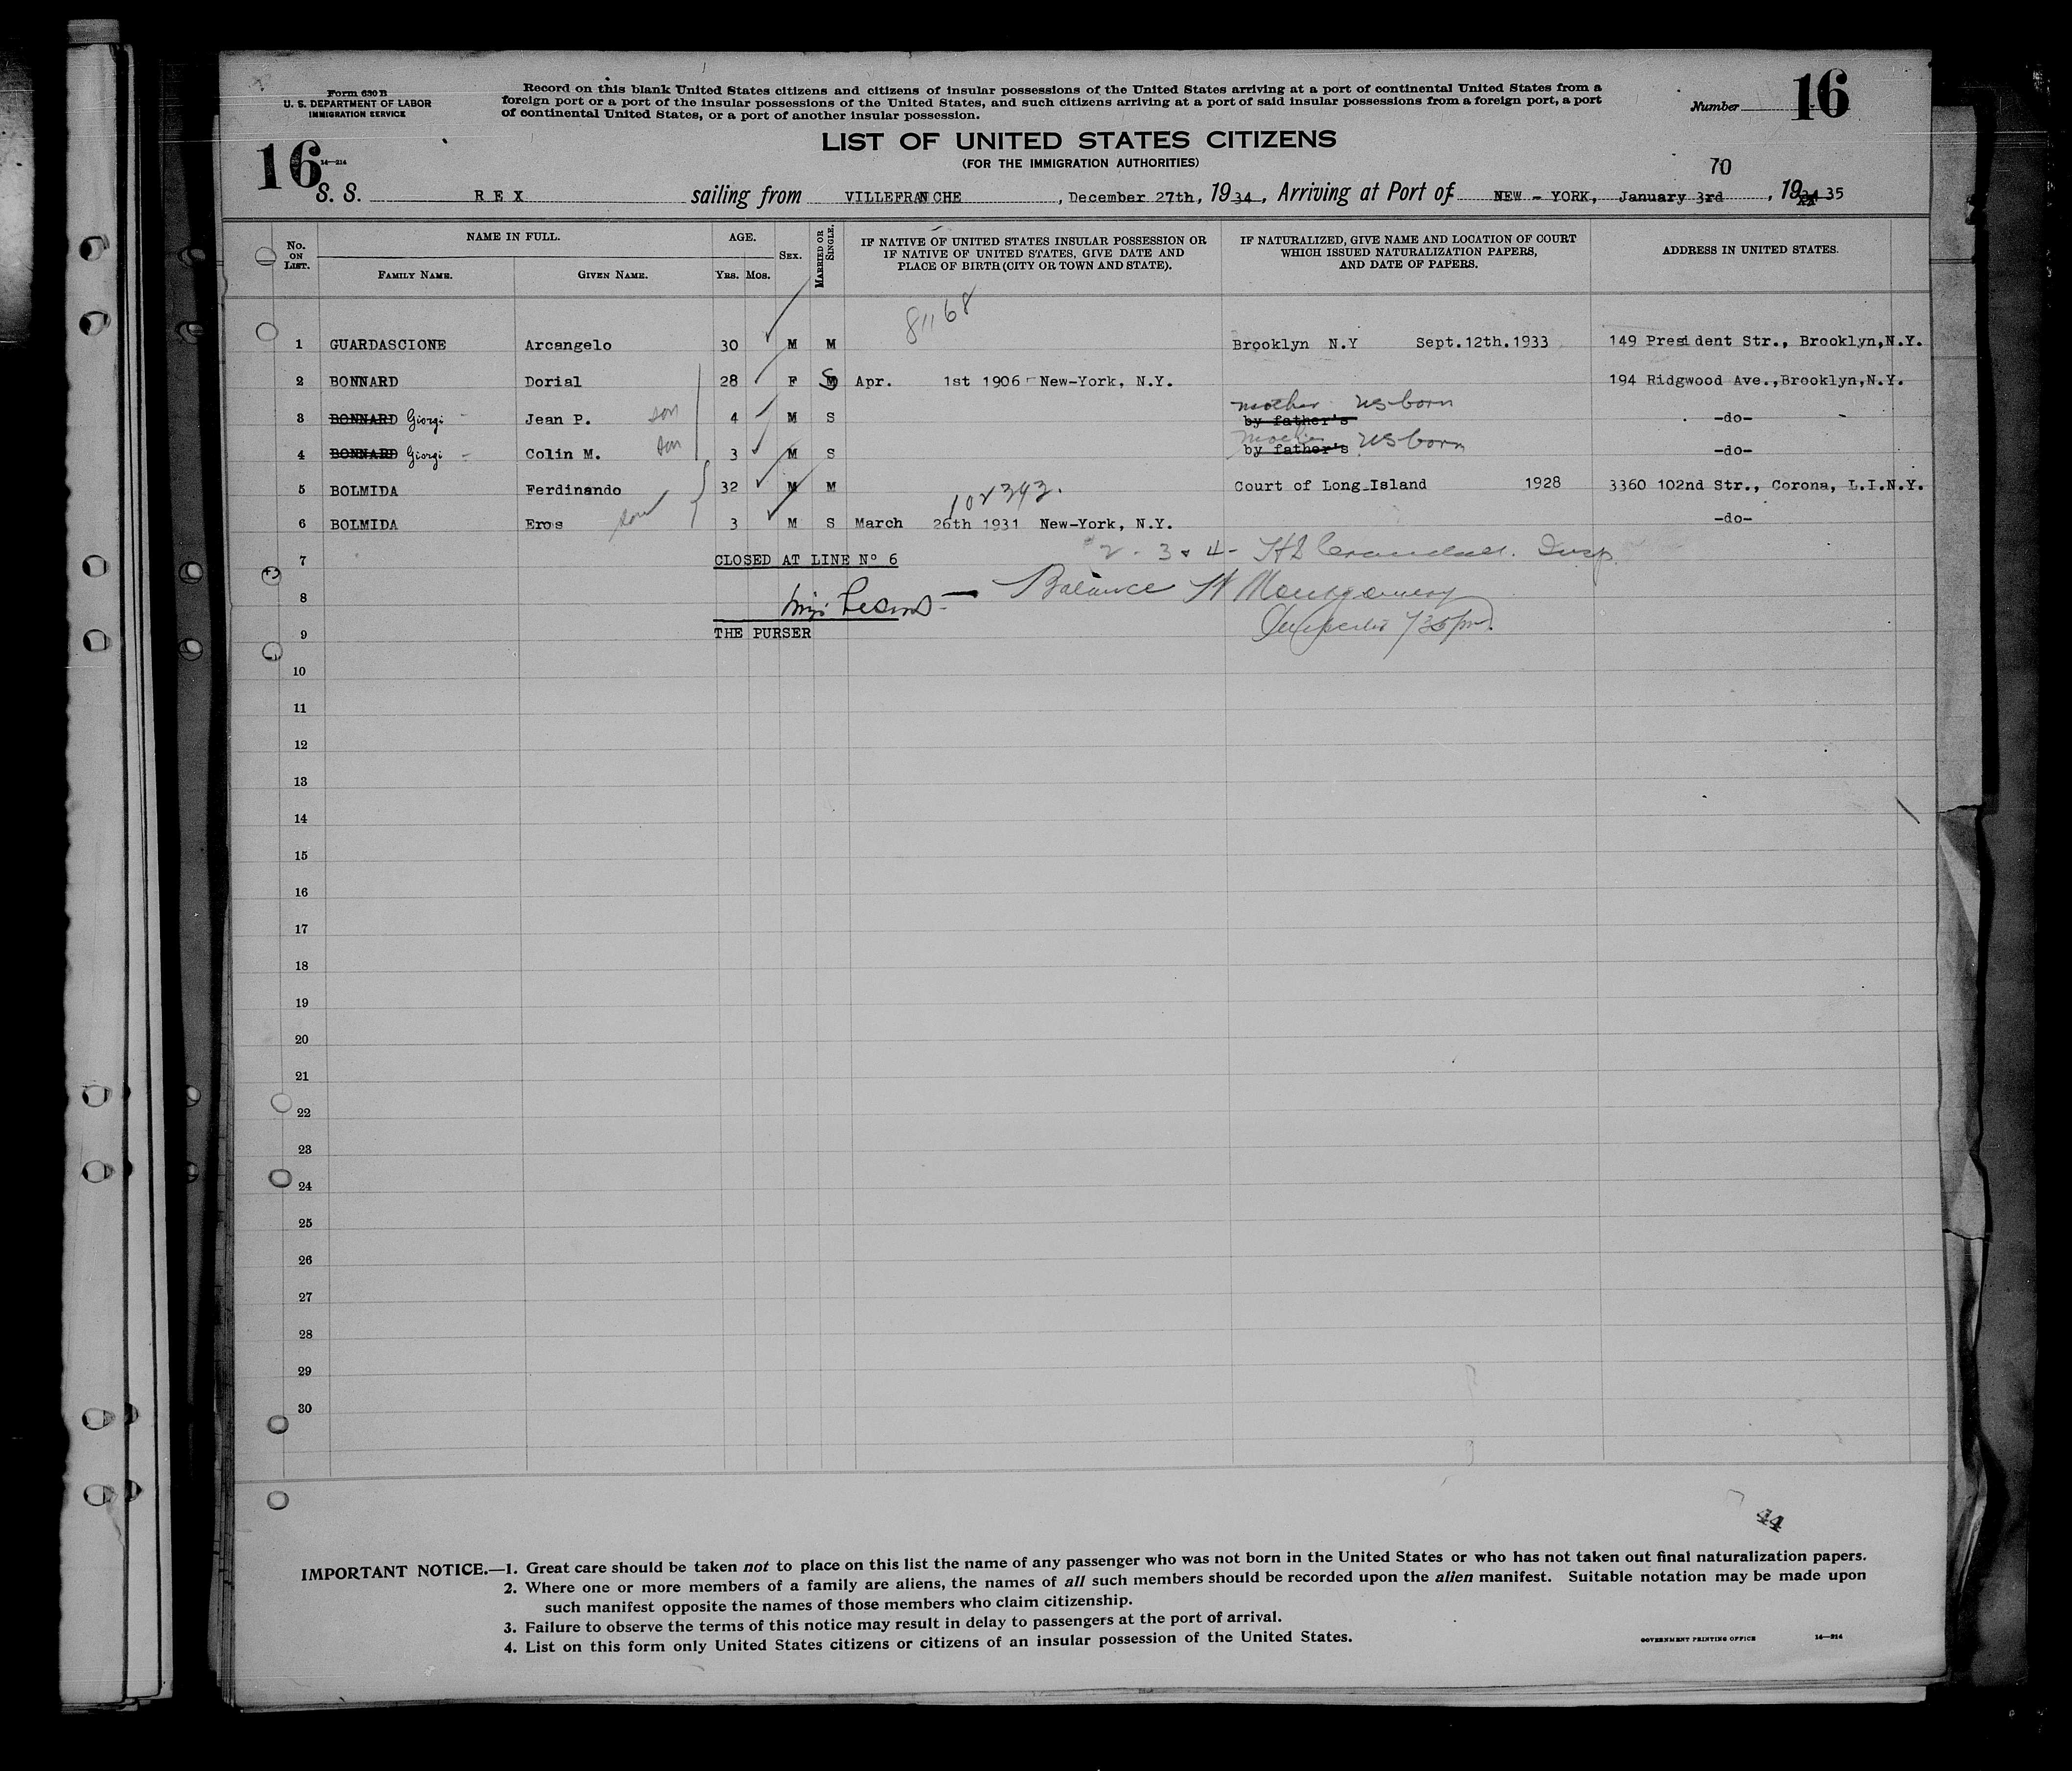 Form 630 B
U. S. DEPARTMENT OF LABOR
IMMIGRATION SERVICE
Record on this blank United States citizens and citizens of insular possessions of the United States arriving at a port of continental United States from a
foreign port or a port of the insular possessions of the United States, and such citizens arriving at a port of said insular possessions from a foreign port, a port
of continental United States, or a port of another insular possession.
Number 16
LIST OF UNITED STATES CITIZENS
(FOR THE IMMIGRATION AUTHORITIES)
16
14—214
70
S. S. REX sailing from VILLEFRANCHE, December 27th, 1934, Arriving at Port of NEW - YORK, January 3rd, 1934 35
No. ON LIST.
NAME IN FULL.
FAMILY NAME. GIVEN NAME.
AGE.
YRS. MOS.
SEX.
MARRIED OR SINGLE.
IF NATIVE OF UNITED STATES INSULAR POSSESSION OR
IF NATIVE OF UNITED STATES, GIVE DATE AND
PLACE OF BIRTH (CITY OR TOWN AND STATE).
IF NATURALIZED, GIVE NAME AND LOCATION OF COURT
WHICH ISSUED NATURALIZATION PAPERS,
AND DATE OF PAPERS.
ADDRESS IN UNITED STATES.
81168
1 GUARDASCIONE Arcangelo 30 M M Brooklyn N.Y Sept.12th.1933 149 President Str., Brooklyn,N.Y.
2 BONNARD Dorial 28 F M S Apr. 1st 1906 New-York, N.Y. 194 Ridgwood Ave.,Brooklyn,N.Y.
mother US born
3 BONNARD Giorgi Jean P. son 4 M S by father's -do-
mother US born
4 BONNARD Giorgi Colin M. son 3 M S by father's -do-
5 BOLMIDA Ferdinando 32 M M Court of Long-Island 1928 3360 102nd Str., Corona, L.I.N.Y.
102343.
6 BOLMIDA Eros son 3 M S March 26th 1931 New-York, N.Y. -do-
#2 - 3 & 4 - Insp.
7 CLOSED AT LINE Nº 6
8 Balance H Montgomery
9 THE PURSER
Inspector 735 pm.
10
11
12
13
14
15
16
17
18
19
20
21
22
23
24
25
26
27
28
29
30
44
IMPORTANT NOTICE.—1. Great care should be taken not to place on this list the name of any passenger who was not born in the United States or who has not taken out final naturalization papers.
2. Where one or more members of a family are aliens, the names of all such members should be recorded upon the alien manifest. Suitable notation may be made upon
such manifest opposite the names of those members who claim citizenship.
3. Failure to observe the terms of this notice may result in delay to passengers at the port of arrival.
4. List on this form only United States citizens or citizens of an insular possession of the United States.
GOVERNMENT PRINTING OFFICE 14—214